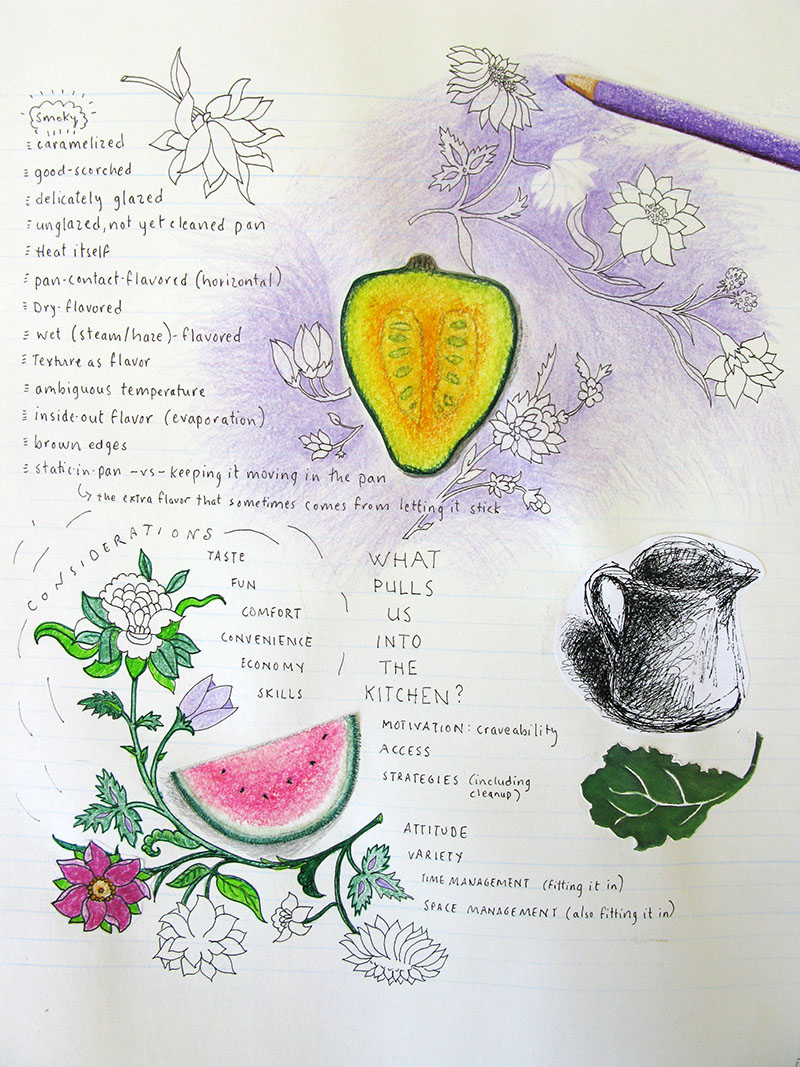 Smoky
caramelized
good-scorched
delicately glazed
unglazed, not yet cleaned pan
Heat itself
pan-contact-flavored (horizontal)
Dry-flavored
wet (steam/haze)-flavored
Texture as flavor
ambiguous temperature
inside-out flavor (evaporation)
brown edges
static-in-pan -vs- keeping it moving in the pan
the extra flavor that sometimes comes from letting it stick
CONSIDERATIONS
TASTE
FUN
COMFORT
CONVENIENCE
ECONOMY
SKILLS
WHAT
PULLS
US
INTO
THE
KITCHEN?
MOTIVATION: craveability
ACCESS
STRATEGIES (including
cleanup)
ATTITUDE
VARIETY
TIME MANAGEMENT (fitting it in)
SPACE MANAGEMENT (also fitting it in)